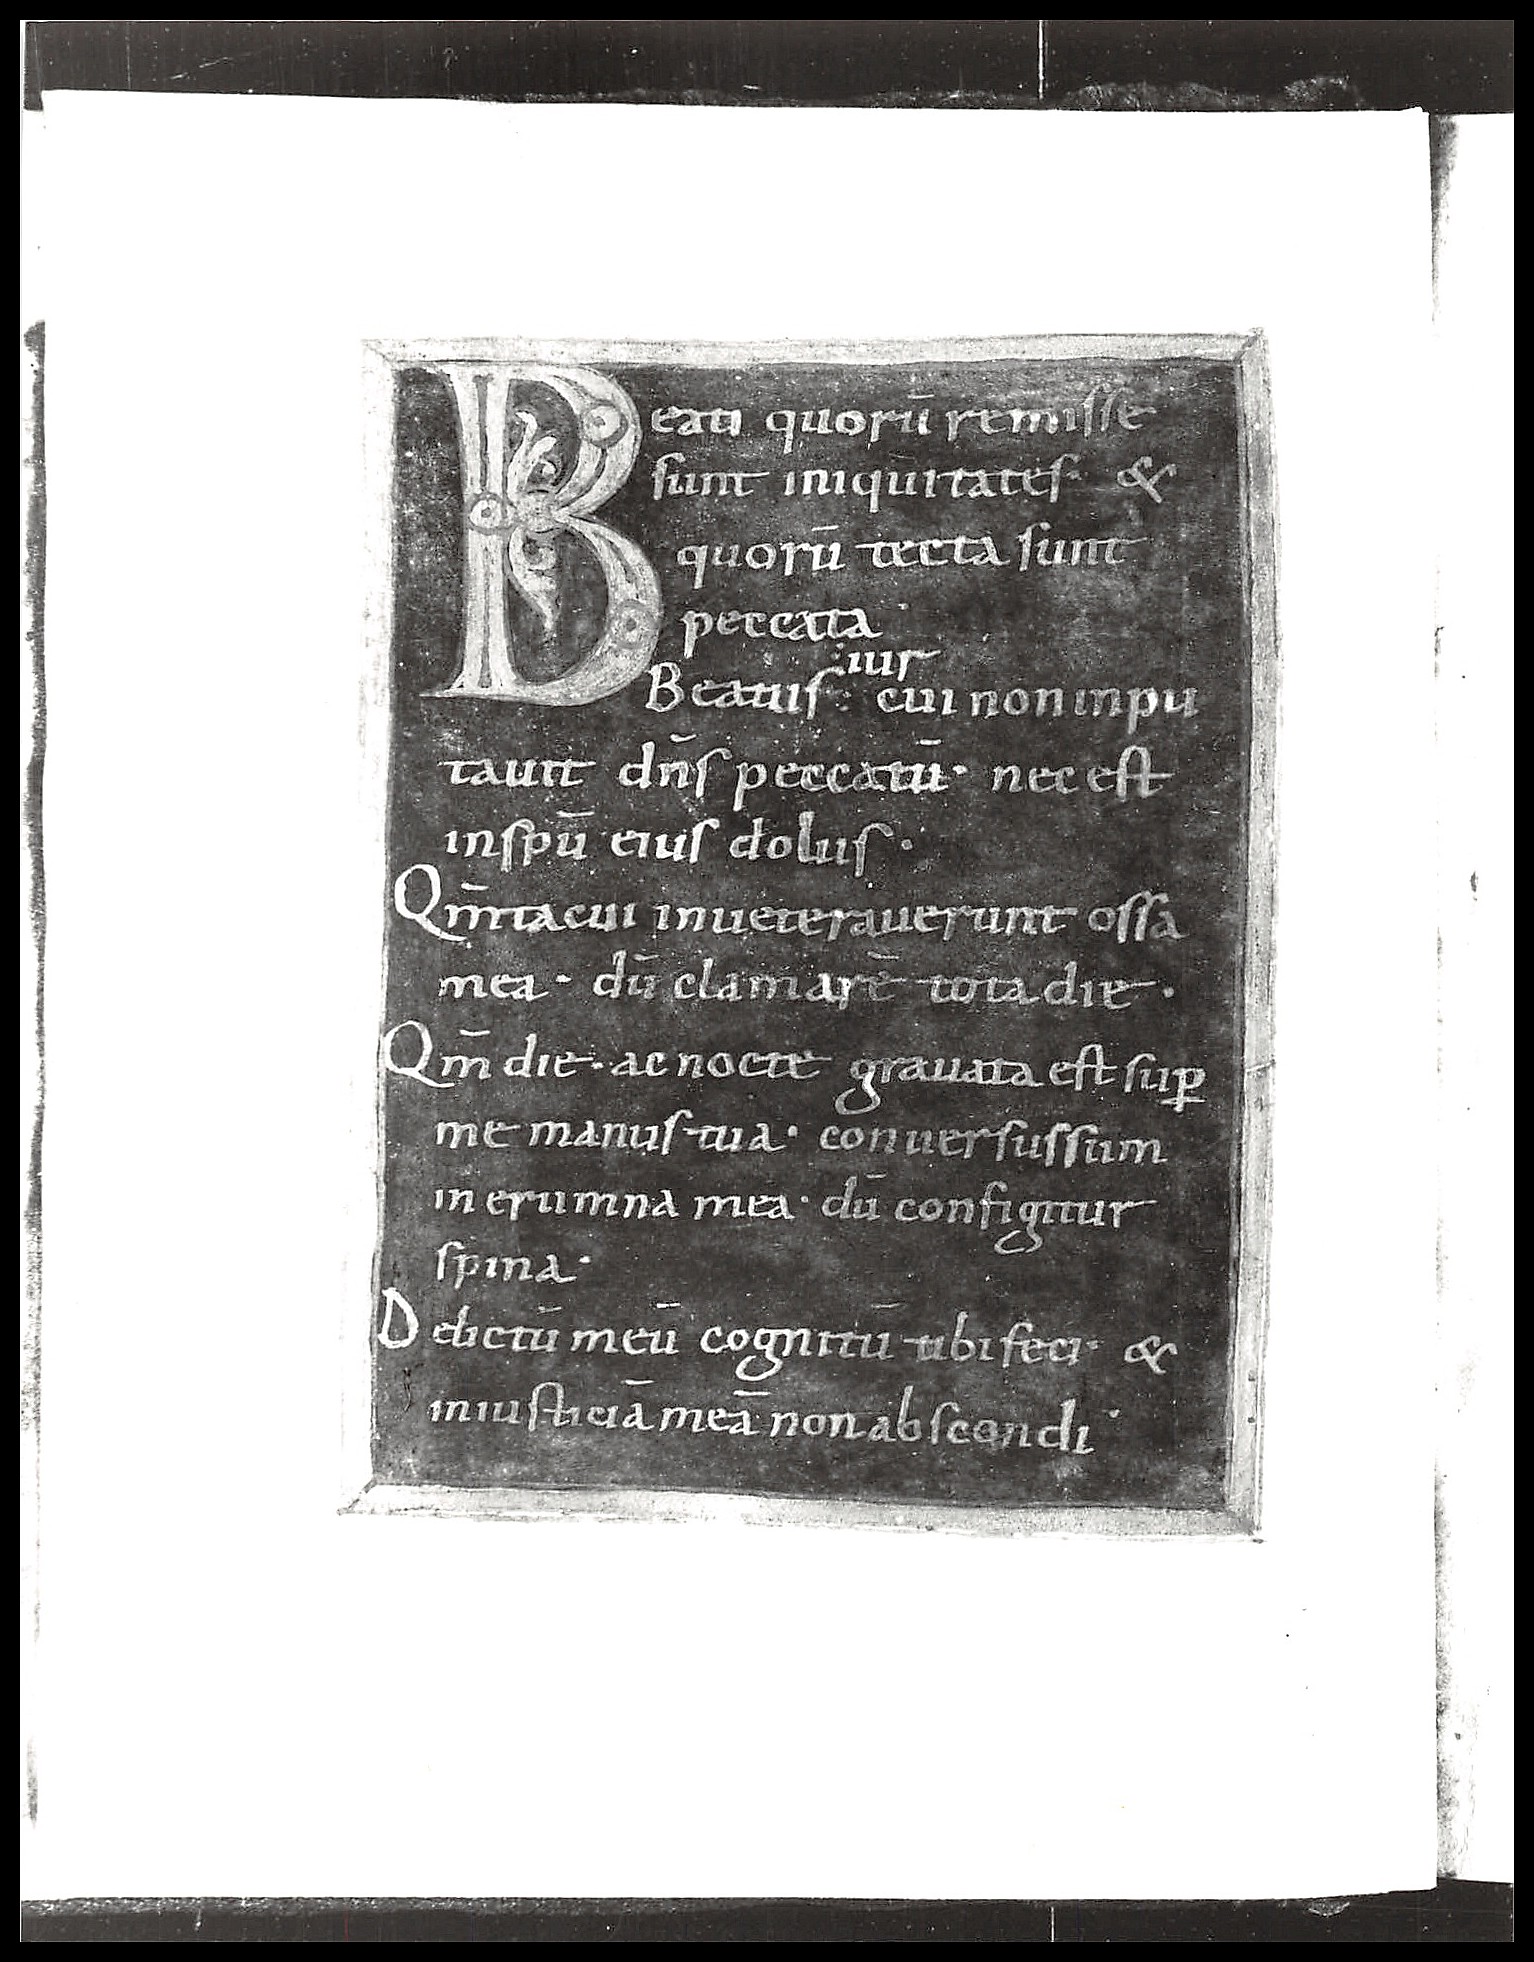 Beati quorū remisse
sunt iniquitates · &
quorū tecta sunt
peccata ·
:uir
Beatus : cui non inpu
tauit dn̄s peccatū · nec est
in spū eius dolus ·
Qm̄ tacui inueterauerunt ossa
mea · dū clamarē tota die ·
Qm̄ die · ac nocte grauata est sup̲
me manus tua · conuersus sum
in erumna mea · dū configitur
spina ·
Delictū meū cognitū tibi feci · &
iniusticiā meā non abscondi ·